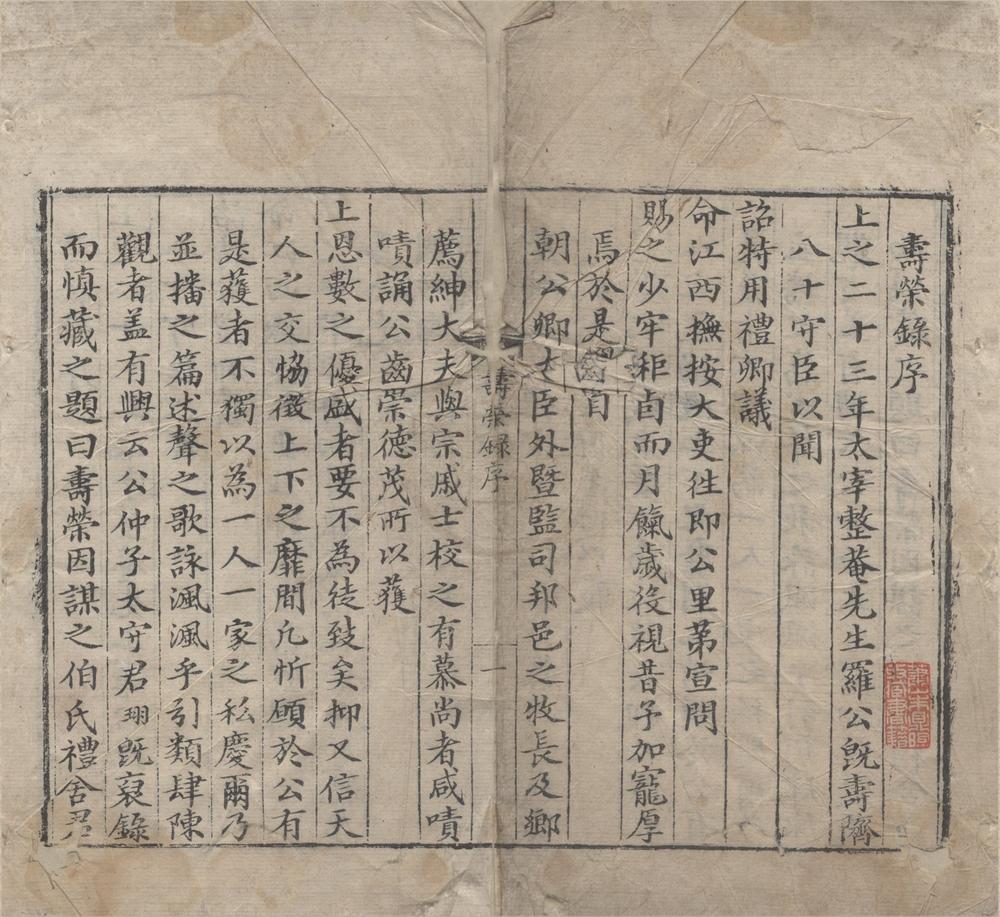 壽榮錄序
上之二十三年太宰整菴先生羅公旣壽隮
八十守臣以聞
詔特用禮卿議
命江西撫按大吏徃即公里苐宣問
賜之少牢秬卣而月餼歲役視昔予加寵厚
焉於是自
朝公卿大臣外暨監司邦邑之牧長及鄉
薦紳大夫與宗戚士校之有慕尚者咸嘖
嘖誦公齒崇德茂所以獲
上恩數之優盛者要不為徒致矣抑又信天
人之交恊徵上下之靡間凢忻願於公有
是獲者不獨以為一人一家之私慶爾乃
並播之篇述聲之歌詠渢渢乎引類肆陳
觀者盖有興云公仲子太守君珝旣裒錄
而慎藏之題曰壽榮因謀之伯氏禮舍君
壽榮錄序
一